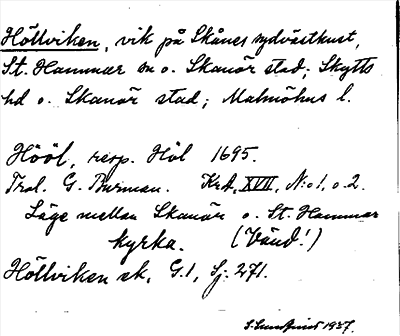 Höllviken, vik på Skånes sydvästkust,
St. Hammar sn o. Skanör stad; Skytts
hd o. Skanör stad; Malmöhus l.
Hööl, resp. Höl 1695.
Trol. G. Burman. KrA, XVII, N:o 1, o. 2.
Läge mellan Skanör o. St. Hammar
kyrka. (Vänd!)
Höllviken ek. G.1, Sj. 271.
S. Lundqvist 1937.